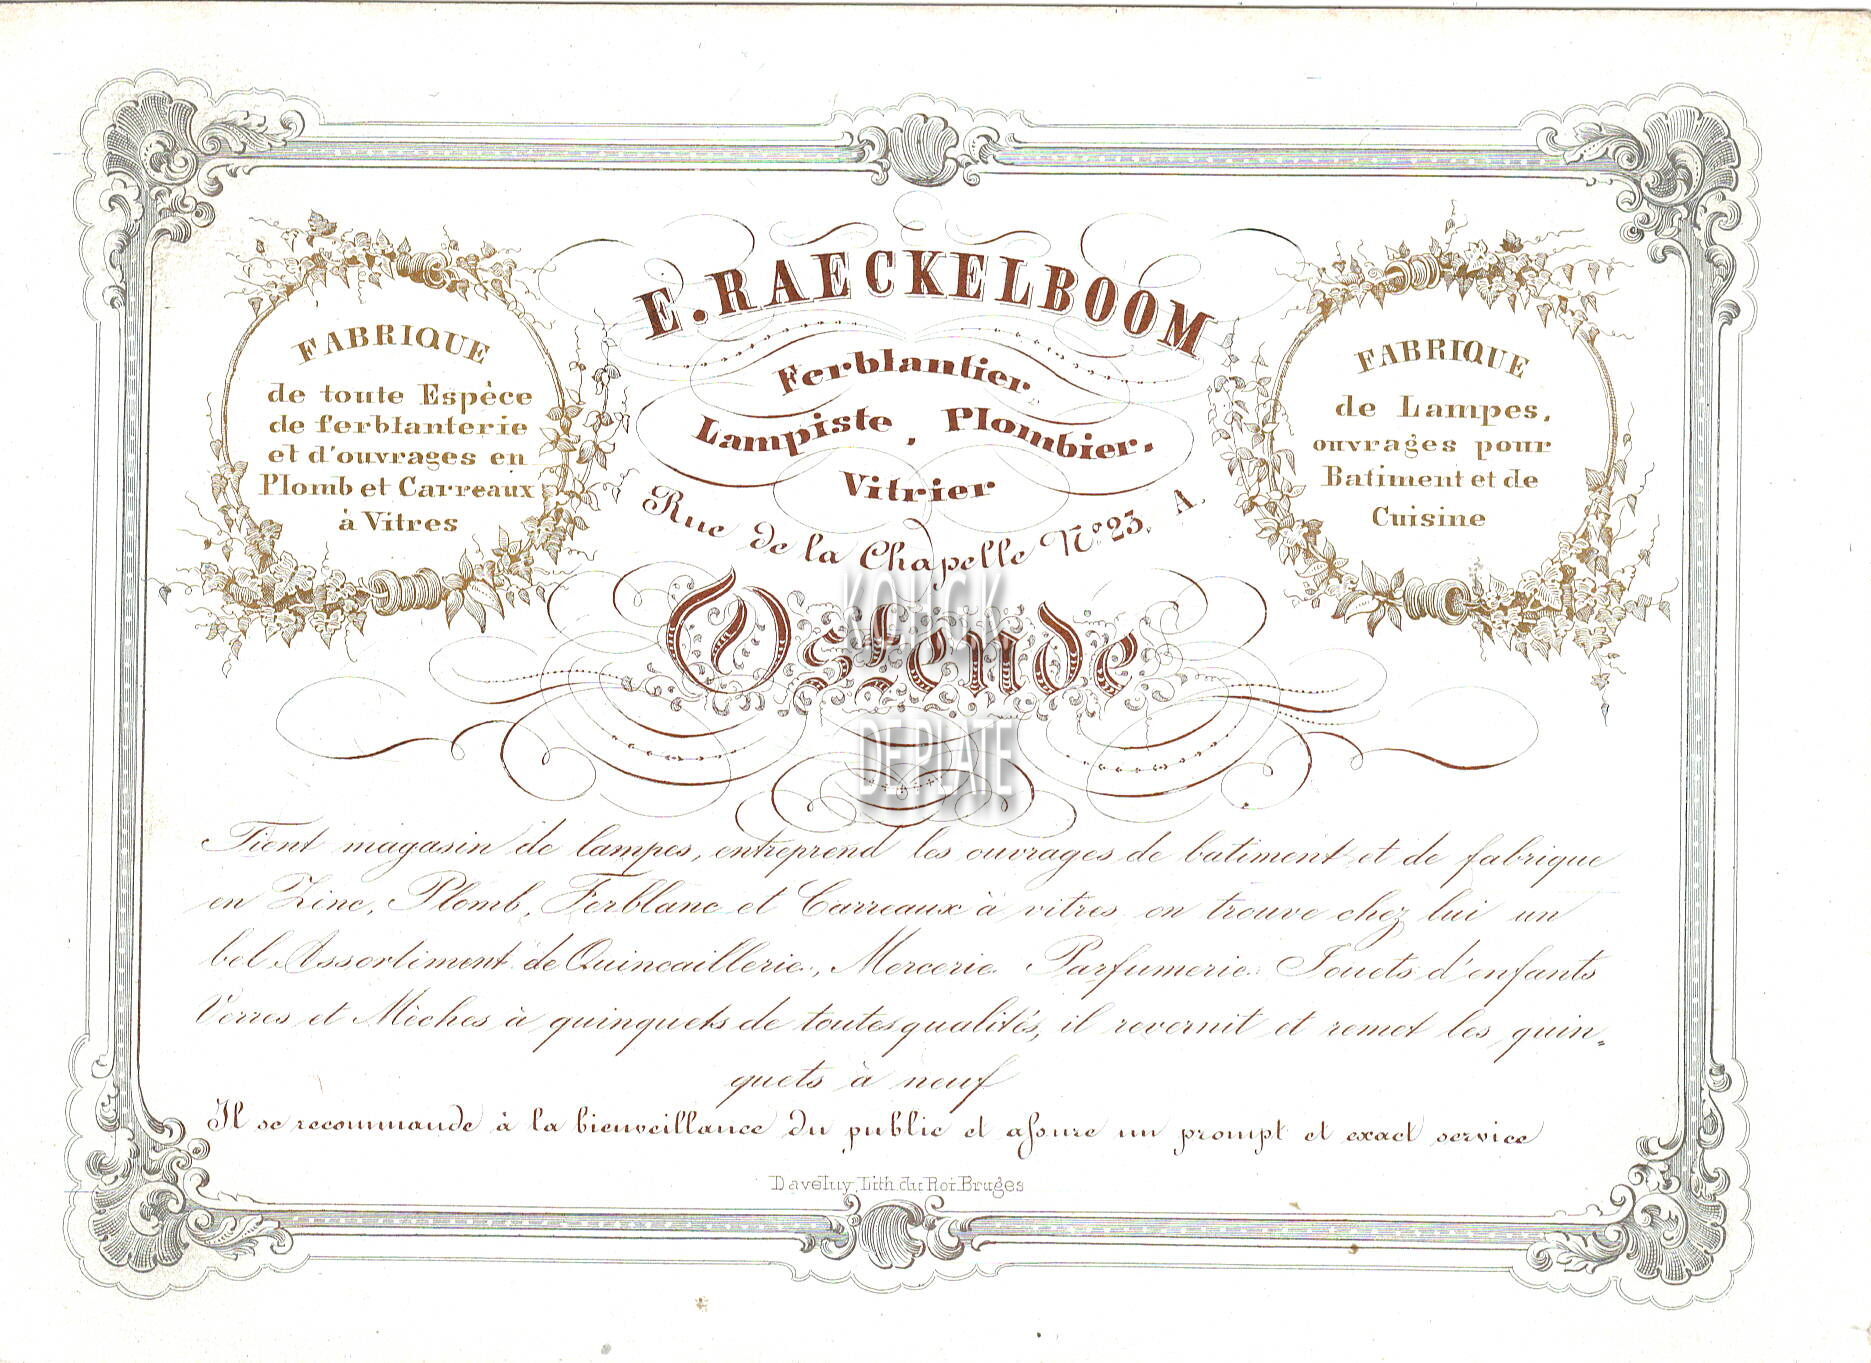 E. RAECKELBOOM
Ferblantier,
Lampiste, Plombier,
Vitrier
Rue de la Chapelle No. 23. A.
Ostende
FABRIQUE
de toute Espèce
de ferblanterie
et d'ouvrages en
Plomb et Carreaux
à Vitres
FABRIQUE
de Lampes,
ouvrages pour
Batiment et de
Cuisine
KONCK
DEPLATE
Tient magasin de lampes, entreprend les ouvrages de batiment et de fabrique
en Zinc, Plomb, Ferblanc et Carreaux à vitres on trouve chez lui un
bel Assortiment de Quincaillerie, Mercerie Parfumerie Jouets d'enfants
Verres et Mèches à quinquets de toutes qualités, il revernit et remet les quin=
quets à neuf
Il se recommande à la bienveillance du public et assure un prompt et exact service
Daveluy, Lith. du Roi Bruges